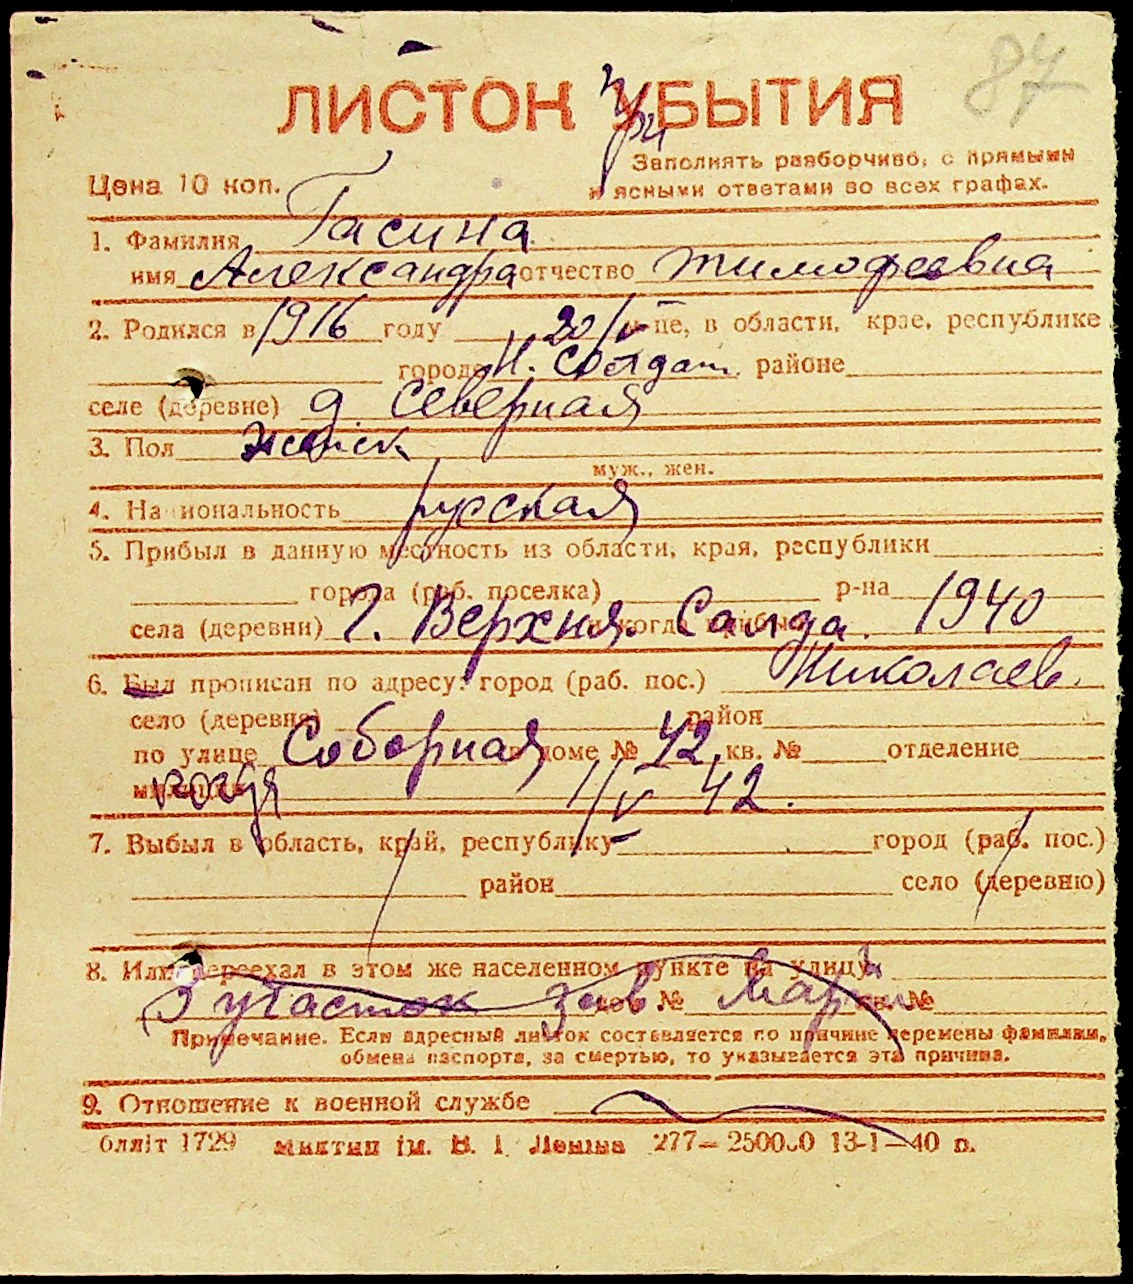 87
ЛИСТОК УБЫТИЯ
Заполнять разборчиво, с прямыми
Цена 10 коп. и ясными ответами во всех графах.
1. Фамилия Гасина
имя Александра отчество Тимофеевна
2. Родился в 1916 году 20/V м-це, в области, крае, республике
городе Н. Солдат. районе
селе (деревне) д Северная
3. Пол женск
муж., жен.
4. Национальность русская
5. Прибыл в данную местность из области, края, республики
города (раб. поселка) р-на
села (деревни) Г. Верхня. Салда. и когда прибыл 1940
6. Был прописан по адресу: город (раб. пос.) Николаев.
село (деревня) район
по улице Соборная в доме № 42, кв. № отделение
милиции когда 1/V 42.
7. Выбыл в область, край, республику город (раб. пос.)
район село (деревню)
8. Или переехал в этом же населенном пункте на улицу
3 участок зав Марти дом № кв. №
Примечание. Если адресный листок составляется по причине перемены фамилии,
обмена паспорта, за смертью, то указывается эта причина.
9. Отношение к военной службе
Облліт 1729 Миктип ім. В. І. Леніна 277— 250000 13-1—40 р.